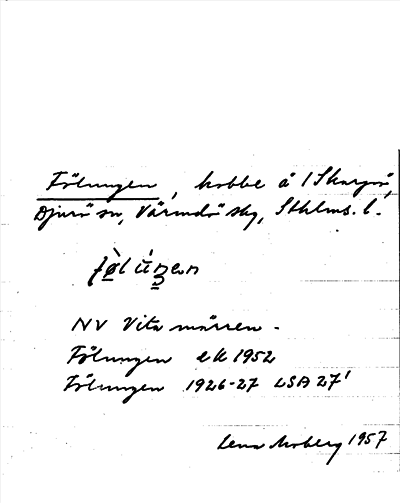 Fölungen, kobbe å 1 Skarprö,
Djurö sn, Värmdö skg, Sthlms. l.
fø̀lúŋen
NV Vita märren -
Fölungen ek 1952
Fölungen 1926-27 LSA 27'
Lena Moberg 1957